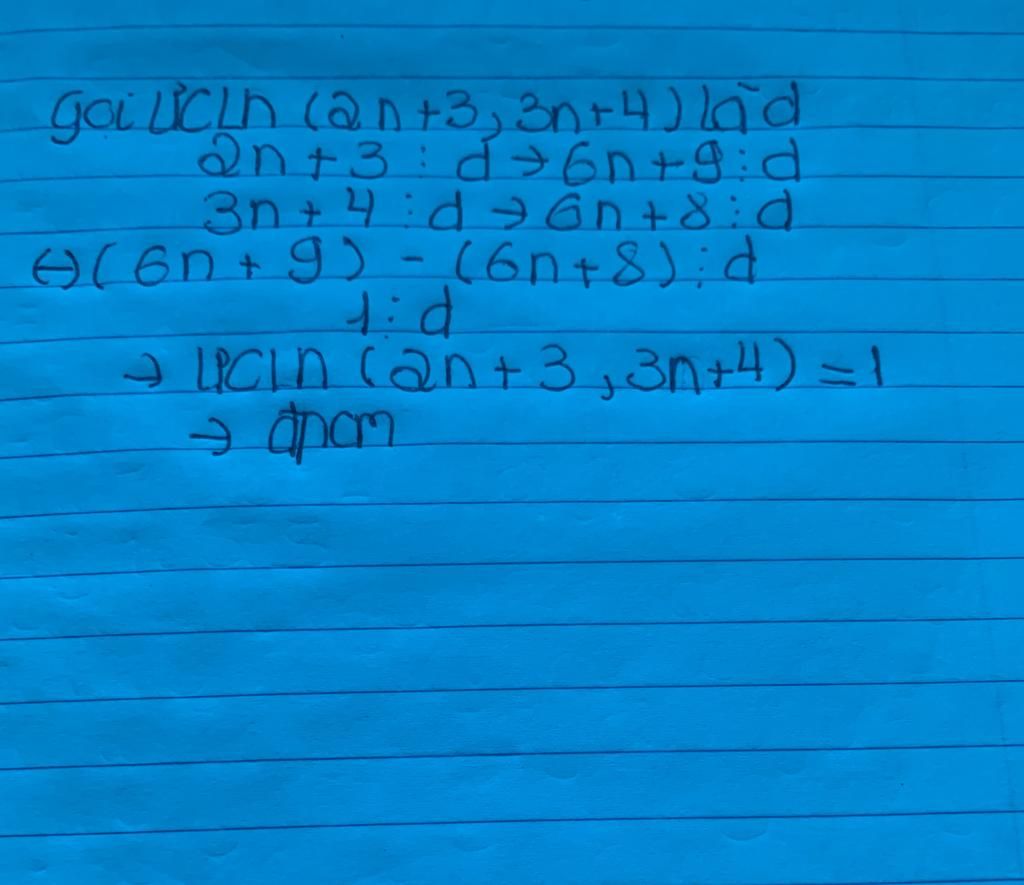 gọi ƯCLN (2n+3, 3n+4) là d
2n + 3 ⋮ d → 6n + 9 ⋮ d
3n + 4 ⋮ d → 6n + 8 ⋮ d
↔ (6n + 9) - (6n + 8) ⋮ d
1 ⋮ d
→ ƯCLN (2n + 3, 3n+4) = 1
→ đpcm